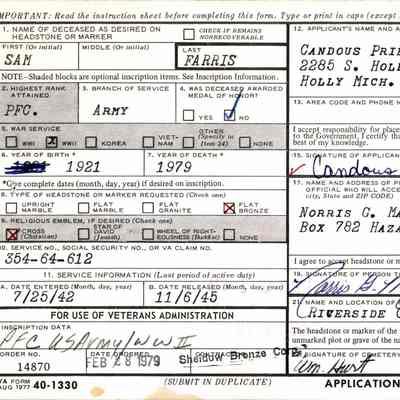 IMPORTANT: Read the instruction sheet before completing this form. Type or print in caps (except
1. NAME OF DECEASED AS DESIRED ON HEADSTONE OR MARKER
CHECK IF REMAINS NONRECOVERABLE
12. APPLICANT'S NAME AND
FIRST (Or initial)
MIDDLE (Or initial)
LAST
SAM
FARRIS
CANDOUS PRI
2285 S. HOL
HOLLY MICH.
NOTE-Shaded blocks are optional inscription items. See Inscription Information.
2. HIGHEST RANK ATTAINED
3. BRANCH OF SERVICE
4. WAS DECEASED AWARDED MEDAL OF HONOR?
PFC.
ARMY
YES
NO
13. AREA CODE AND PHONE
5. WAR SERVICE
WWI
WWII
KOREA
VIET-NAM
OTHER (Specify in Item 24)
NONE
I accept responsibility for
to the Government, I certify that
best of my knowledge.
6. YEAR OF BIRTH *
7. YEAR OF DEATH *
1921
1979
15. SIGNATURE OF APPLICAN
Candous
*Give complete dates (month, day, year) if desired on inscription.
8. TYPE OF HEADSTONE OR MARKER REQUESTED (Check one)
UPRIGHT MARBLE
FLAT MARBLE
FLAT GRANITE
FLAT BRONZE
17. NAME AND ADDRESS OF
OFFICIAL WHO WILL ACCEP
city, State and ZIP CODE)
9. RELIGIOUS EMBLEM, IF DESIRED (Check one)
CROSS (Christian)
STAR OF DAVID (Jewish)
WHEEL OF RIGHTEOUSNESS (Buddhist)
NONE
NORRIS C. MA
BOX 782 HAZA
10. SERVICE NO., SOCIAL SECURITY NO., OR VA CLAIM NO.
354-64-612
I agree to accept headstone or
11. SERVICE INFORMATION (Last period of active duty)
A. DATE ENTERED (Month, day, year)
B. DATE SEPARATED (Month, day, year)
7/25/42
11/6/45
FOR USE OF VETERANS ADMINISTRATION
21. NAME AND LOCATION OF
RIVERSIDE C
INSCRIPTION DATA
PFC US Army/WW II
The headstone or marker of the
unmarked plot or grave of the
ORDER NO.
14870
DATE ORDERED
FEB 28 1979
Sheidow Bronze Corp
SIGNATURE OF CEMETERY
Wm. Hurt
VA FORM
AUG 1977 40-1330
(SUBMIT IN DUPLICATE)
APPLICATION